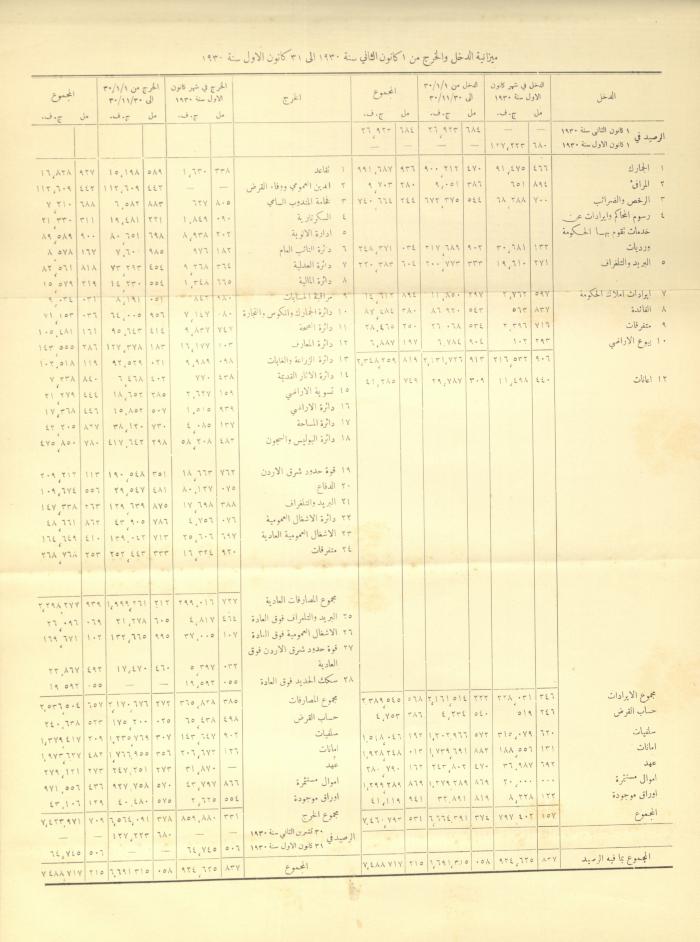 ميزانية الدخل والخرج من ١ كانون الثاني سنة ١٩٣٠ الى ٣١ كانون الاول سنة ١٩٣٠
الدخل
الدخل في شهر كانون الاول سنة ١٩٣٠
الدخل من ٣٠/١/١ الى ٣٠/١١/٣٠
المجموع
مل ج.ف.
الرصيد في
١ كانون الثاني سنة ١٩٣٠ — — ٦٨٤ ٢٦,٩٢٣ ٦٨٤ ٢٦,٩٢٣
١ كانون الاول سنة ١٩٣٠ ٦٨٠ ١٢٧,٢٢٣ — — — —
١ الجمارك ٤٦٦ ٩١,٤٧٥ ٤٧٠ ٩٠٠,٢١٢ ٩٣٦ ٩٩١,٦٨٧
٢ المرافئ ٨٩٤ ٦٥١ ٣٨٦ ٩,٠٥١ ٢٨٠ ٩,٧٠٣
٣ الرخص والضرائب ٧٠٠ ٦٨,٢٨٨ ٥٤٤ ٦٧٢,٣٧٥ ٢٤٤ ٧٤٠,٦٦٤
٤ رسوم المحاكم وايرادات عن
خدمات تقوم بها الحكومة
ورديات ١٣٢ ٣٠,٦٨١ ٩٠٢ ٢١٧,٦٨٩ ٠٣٤ ٢٤٨,٣٧١
٥ البريد والتلغراف ٢٧١ ١٩,٦١٠ ٣٣٣ ٢٠٠,٧٧٣ ٦٠٤ ٢٢٠,٣٨٣
٧ ايرادات املاك الحكومة ٥٩٧ ٢,٧٦٢ ٢٩٧ ١١,٨٥٠ ٨٩٤ ١٤,٦١٢
٨ الفائدة ٨٣٧ ٥٦٣ ٥٤٣ ٨٦,٩٢٠ ٣٨٠ ٨٧,٤٨٤
٩ متفرقات ٧١٦ ٢,٣٩٦ ٥٣٤ ٢٦,٠٦٨ ٢٥٠ ٢٨,٤٦٥
١٠ بيوع الاراضي ٢٩٣ ١٠٢ ٩٠٤ ٦,٧٨٤ ١٩٧ ٦,٨٨٧
٩٠٦ ٢١٦,٥٣٢ ٩١٣ ٢,١٣١,٧٢٦ ٨١٩ ٢,٣٤٨,٢٥٩
١٢ اعانات ٤٤٠ ١١,٤٩٨ ٣٠٩ ٢٩,٧٨٧ ٧٤٩ ٤١,٢٨٥
مجموع الايرادات ٣٤٦ ٢٢٨,٠٣١ ٢٢٢ ٢,١٦١,٥١٤ ٥٦٨ ٢,٣٨٩,٥٤٥
حساب القرض ٢٤٦ ٥١٩ ٥٤٠ ٤,٢٣٤ ٧٨٦ ٤,٧٥٣
سلفيات ٦٢٠ ٣١٥,٠٧٩ ٥٧٢ ١,٢٠٢,٩٦٦ ١٩٢ ١,٥١٨,٠٤٦
امانات ١٣١ ١٨٨,٥٥٦ ٨٨٢ ١,٧٣٩,٦٩١ ٠١٣ ١,٩٢٨,٢٤٨
عهد ٦٩٢ ٣٦,٩٨٧ ٤٧٠ ٢٤٣,٨٠٢ ١٦٢ ٢٨٠,٧٩٠
اموال مستثمرة ٠٠٠ ٢٠,٠٠٠ ٨٦٩ ١,٢٧٩,٢٨٩ ٨٦٩ ١,٢٩٩,٢٨٩
اوراق موجودة ١٢٢ ٨,٢٢٨ ٨١٩ ٣٢,٨٩١ ٩٤١ ٤١,١١٩
المجموع ١٥٧ ٧٩٧,٤٠٢ ٣٧٤ ٦,٦٦٤,٣٩١ ٥٣١ ٧,٤٦١,٧٩٣
المجموع بما فيه الرصيد ٨٣٧ ٩٢٤,٦٢٥ ٠٥٨ ٦,٦٩١,٣١٥ ٢١٥ ٧,٤٨٨,٧١٧
الخرج
الخرج في شهر كانون الاول سنة ١٩٣٠
الخرج من ٣٠/١/١ الى ٣٠/١١/٣٠
المجموع
مل ج.ف.
١ تقاعد ٣٣٨ ١,٦٣٠ ٥٨٩ ١٥,١٩٨ ٩٢٧ ١٦,٨٢٨
٢ الدين العمومي ووفاء القرض — — ٤٤٢ ١١٢,٦٠٩ ٤٤٢ ١١٢,٦٠٩
٣ فخامة المندوب السامي ٨٠٥ ٦٢٧ ٨٨٣ ٦,٥٨٢ ٦٨٨ ٧,٢١٠
٤ السكرتارية ٠٩٠ ١,٨٤٩ ٢٢١ ١٩,٤٨١ ٣١١ ٢١,٣٣٠
٥ ادارة الالوية ٢٠٢ ٨,٩٣٨ ٦٩٨ ٨٠,٦٥١ ٩٠٠ ٨٩,٥٨٩
٦ دائرة النائب العام ١٨٢ ٩٧٦ ٩٨٥ ٧,٦٠١ ١٦٧ ٨,٥٧٨
٧ دائرة العدلية ٣٦٤ ٩,٢٦٨ ٤٥٤ ٧٣,٢٩٣ ٨١٨ ٨٢,٥٦١
٨ دائرة المالية ٦٦٥ ١,٣٤٨ ٥٥٤ ١٤,٢٣٠ ٢١٩ ١٥,٥٧٩
٩ مراقبة الحسابات ٩٨٠ ٨٤٢ ٠٥١ ٨,١٩١ ٠٣١ ٩,٠٣٤
١٠ دائرة الجمارك والمكوس والتجارة ٠٨٠ ٧,١٤٧ ٩٥٦ ٦٤,٠٠٥ ٠٣٦ ٧١,١٥٣
١١ دائرة الصحة ٧٤٧ ٩,٨٣٧ ٤١٤ ٩٥,٦٤٣ ١٦١ ١٠٥,٤٨١
١٢ دائرة المعارف ١٠٣ ١٦,١٧٧ ١٨٣ ١٢٧,٣٧٨ ٢٨٦ ١٤٣,٥٥٥
١٣ دائرة الزراعة والغابات ٠٩٨ ٩,٩٨٩ ٠٢١ ٩٢,٥٢٩ ١١٩ ١٠٢,٥١٨
١٤ دائرة الاثار القديمة ٤٣٨ ٧٧٠ ٤٠٢ ٦,٤٦٨ ٨٤٠ ٧,٢٣٨
١٥ تسوية الاراضي ١٥٩ ٢,٦٢٧ ٢٨٥ ١٨,٦٥٢ ٤٤٤ ٢١,٢٧٩
١٦ دائرة الاراضي ٩٣٩ ١,٥١٥ ٥٠٧ ١٥,٨٥٢ ٤٤٦ ١٧,٣٦٨
١٧ دائرة المساحة ١٣٧ ٤,٠٨٥ ٧٣٠ ٣٨,١٢٠ ٨٢٧ ٤٢,٢٠٥
١٨ دائرة البوليس والسجون ٤٨٢ ٥٨,٢٠٨ ٢٩٨ ٤١٧,٦٤٢ ٧٨٠ ٤٧٥,٨٥٠
١٩ قوة حدود شرق الاردن ٧٦٢ ١٨,٦٦٣ ٣٥١ ١٩٠,٥٤٨ ١١٣ ٢٠٩,٢١٢
٢٠ الدفاع ٠٧٥ ٨٠,١٢٧ ٤٨١ ٢٩,٥٤٧ ٥٥٦ ١٠٩,٦٧٤
٢١ البريد والتلغراف ٣٨٨ ١٧,٦٩٨ ٨٧٥ ١٢٩,٦٣٩ ٢٦٣ ١٤٧,٣٣٨
٢٢ دائرة الاشغال العمومية ٠٧٦ ٤,٧٥٦ ٧٨٦ ٤٣,٩٠٥ ٨٦٢ ٤٨,٦٦١
٢٣ الاشغال العمومية العادية ٦٩٧ ٢٥,٦٠٦ ٧١٣ ١٣٩,٠٤٢ ٤١٠ ١٦٤,٦٤٩
٢٤ متفرقات ٩٢٠ ١٦,٣٢٤ ٣٣٣ ٢٥٢,٤٤٣ ٢٥٣ ٢٦٨,٧٦٨
مجموع المصارفات العادية ٧٢٧ ٢٩٩,٠١٦ ٢١٢ ١,٩٩٩,٢٦١ ٩٣٩ ٢,٢٩٨,٢٧٧
٢٥ البريد والتلغراف فوق العادة ٤٦٤ ٤,٨١٧ ٦٠٥ ٢١,٢٧٨ ٠٦٩ ٢٦,٠٩٦
٢٦ الاشغال العمومية فوق العادة ١٠٧ ٣٧,٠٠٥ ٩٩٥ ١٣٢,٦٦٥ ١٠٢ ١٦٩,٦٧١
٢٧ قوة حدود شرق الاردن فوق
العادية ٠٣٢ ٥,٣٩٧ ٤٦٠ ١٧,٤٧٠ ٤٩٢ ٢٢,٨٦٧
٢٨ سكك الحديد فوق العادة ٠٥٥ ١٩,٥٩٢ — — ٠٥٥ ١٩,٥٩٢
مجموع المصارفات ٣٨٥ ٣٦٥,٨٢٨ ٢٧٢ ٢,١٧٠,٦٧٦ ٦٥٧ ٢,٥٣٦,٥٠٤
حساب القرض ٤٩٨ ٦٥,٤٣٨ ٠٢٥ ١٧٥,٢٠٠ ٥٢٣ ٢٤٠,٦٣٨
سلفيات ٩٠٢ ١٤٣,٦٤٧ ٣٠٧ ١,٢٣٥,٧٦٩ ٢٠٩ ١,٣٧٩,٤١٧
امانات ١٢٦ ٢٠٦,٦٧٢ ٣٥٦ ١,٧٦٦,٩٥٥ ٤٨٢ ١,٩٧٣,٦٢٧
عهد — ٣١,٨٧٠ ٢٧٣ ٢٤٧,٢٥١ ٢٧٣ ٢٧٩,١٢١
اموال مستثمرة ٨٦٦ ٤٣,٧٩٧ ٥٧٠ ٩٢٧,٧٥٨ ٤٣٦ ٩٧١,٥٥٦
اوراق موجودة ٥٥٤ ٢,٦٢٥ ٥٧٥ ٤٠,٤٨٠ ١٢٩ ٤٣,١٠٦
مجموع الخرج ٣٣١ ٨٥٩,٨٨٠ ٣٧٨ ٦,٥٦٤,٠٩١ ٧٠٩ ٧,٤٢٣,٩٧١
الرصيد في
٣٠ تشرين الثاني سنة ١٩٣٠ — — ٦٨٠ ١٢٧,٢٢٣ — —
٣١ كانون الاول سنة ١٩٣٠ ٥٠٦ ٦٤,٧٤٥ — — ٥٠٦ ٦٤,٧٤٥
المجموع ٨٣٧ ٩٢٤,٦٢٥ ٠٥٨ ٦,٦٩١,٣١٥ ٢١٥ ٧,٤٨٨,٧١٧